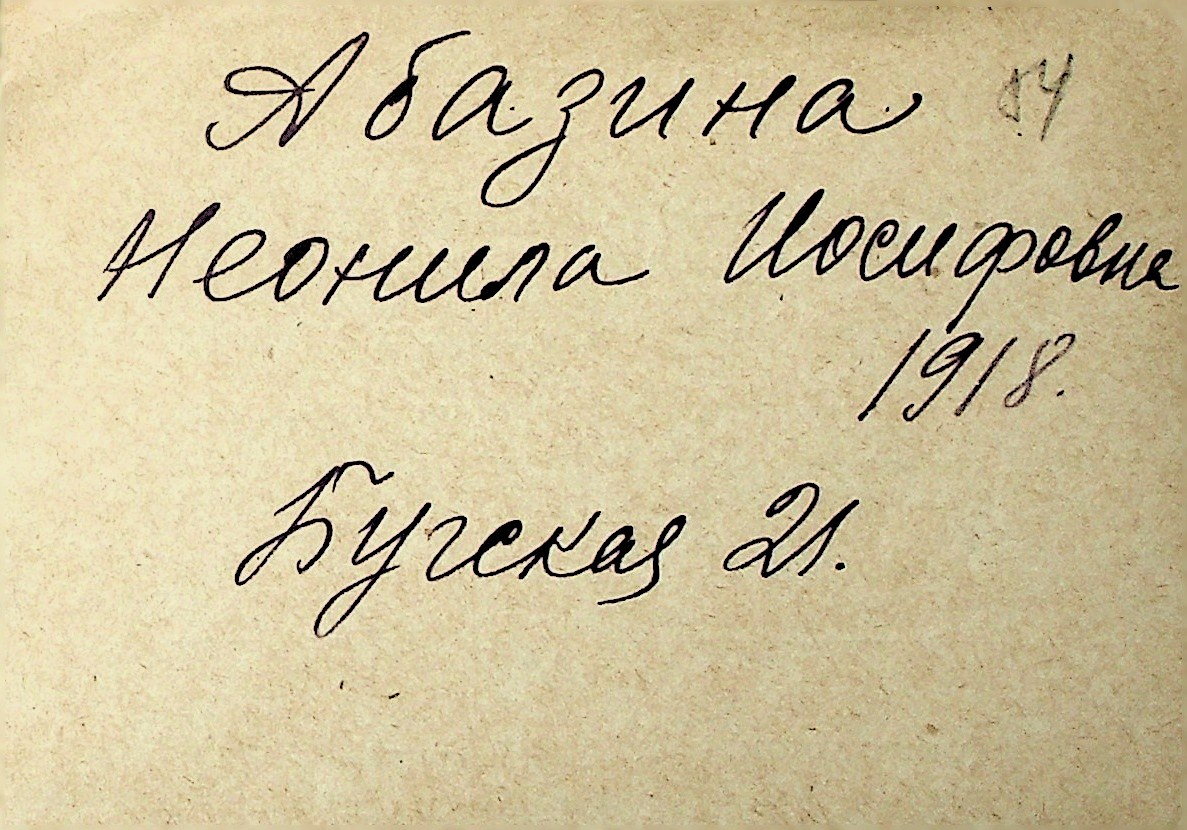 Абазина
Неонила Иосифовна
1918.
Бугская 21.